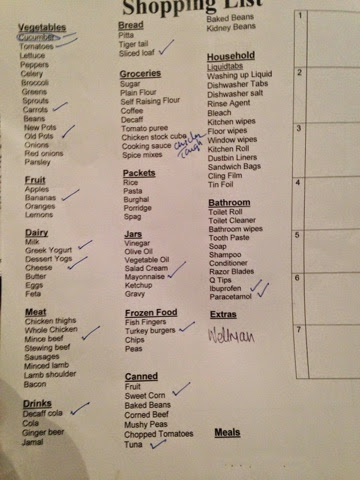 Shopping List
Vegetables
Cucumber
Tomatoes
Lettuce
Peppers
Celery
Broccoli
Greens
Sprouts
Carrots
Beans
New Pots
Old Pots
Onions
Red onions
Parsley
Fruit
Apples
Bananas
Oranges
Lemons
Dairy
Milk
Greek Yogurt
Dessert Yogs
Cheese
Butter
Eggs
Feta
Meat
Chicken thighs
Whole Chicken
Mince beef
Stewing beef
Sausages
Minced lamb
Lamb shoulder
Bacon
Drinks
Decaff cola
Cola
Ginger beer
Jamal
Bread
Pitta
Tiger tail
Sliced loaf
Groceries
Sugar
Plain Flour
Self Raising Flour
Coffee
Decaff
Tomato puree
Chicken stock cube
Cooking sauce
Spice mixes
Packets
Rice
Pasta
Burghal
Porridge
Spag
Jars
Vinegar
Olive Oil
Vegetable Oil
Salad Cream
Mayonnaise
Ketchup
Gravy
Frozen Food
Fish Fingers
Turkey burgers
Chips
Peas
Canned
Fruit
Sweet Corn
Baked Beans
Corned Beef
Mushy Peas
Chopped Tomatoes
Tuna
Baked Beans
Kidney Beans
Household
Liquidtabs
Washing up Liquid
Dishwasher Tabs
Dishwasher salt
Rinse Agent
Bleach
Kitchen wipes
Floor wipes
Window wipes
Kitchen Roll
Dustbin Liners
Sandwich Bags
Cling Film
Tin Foil
Bathroom
Toilet Roll
Toilet Cleaner
Bathroom wipes
Tooth Paste
Soap
Shampoo
Conditioner
Razor Blades
Q Tips
Ibuprofen
Paracetamol
Extras
Wellman
Meals
1
2
3
4
5
6
7